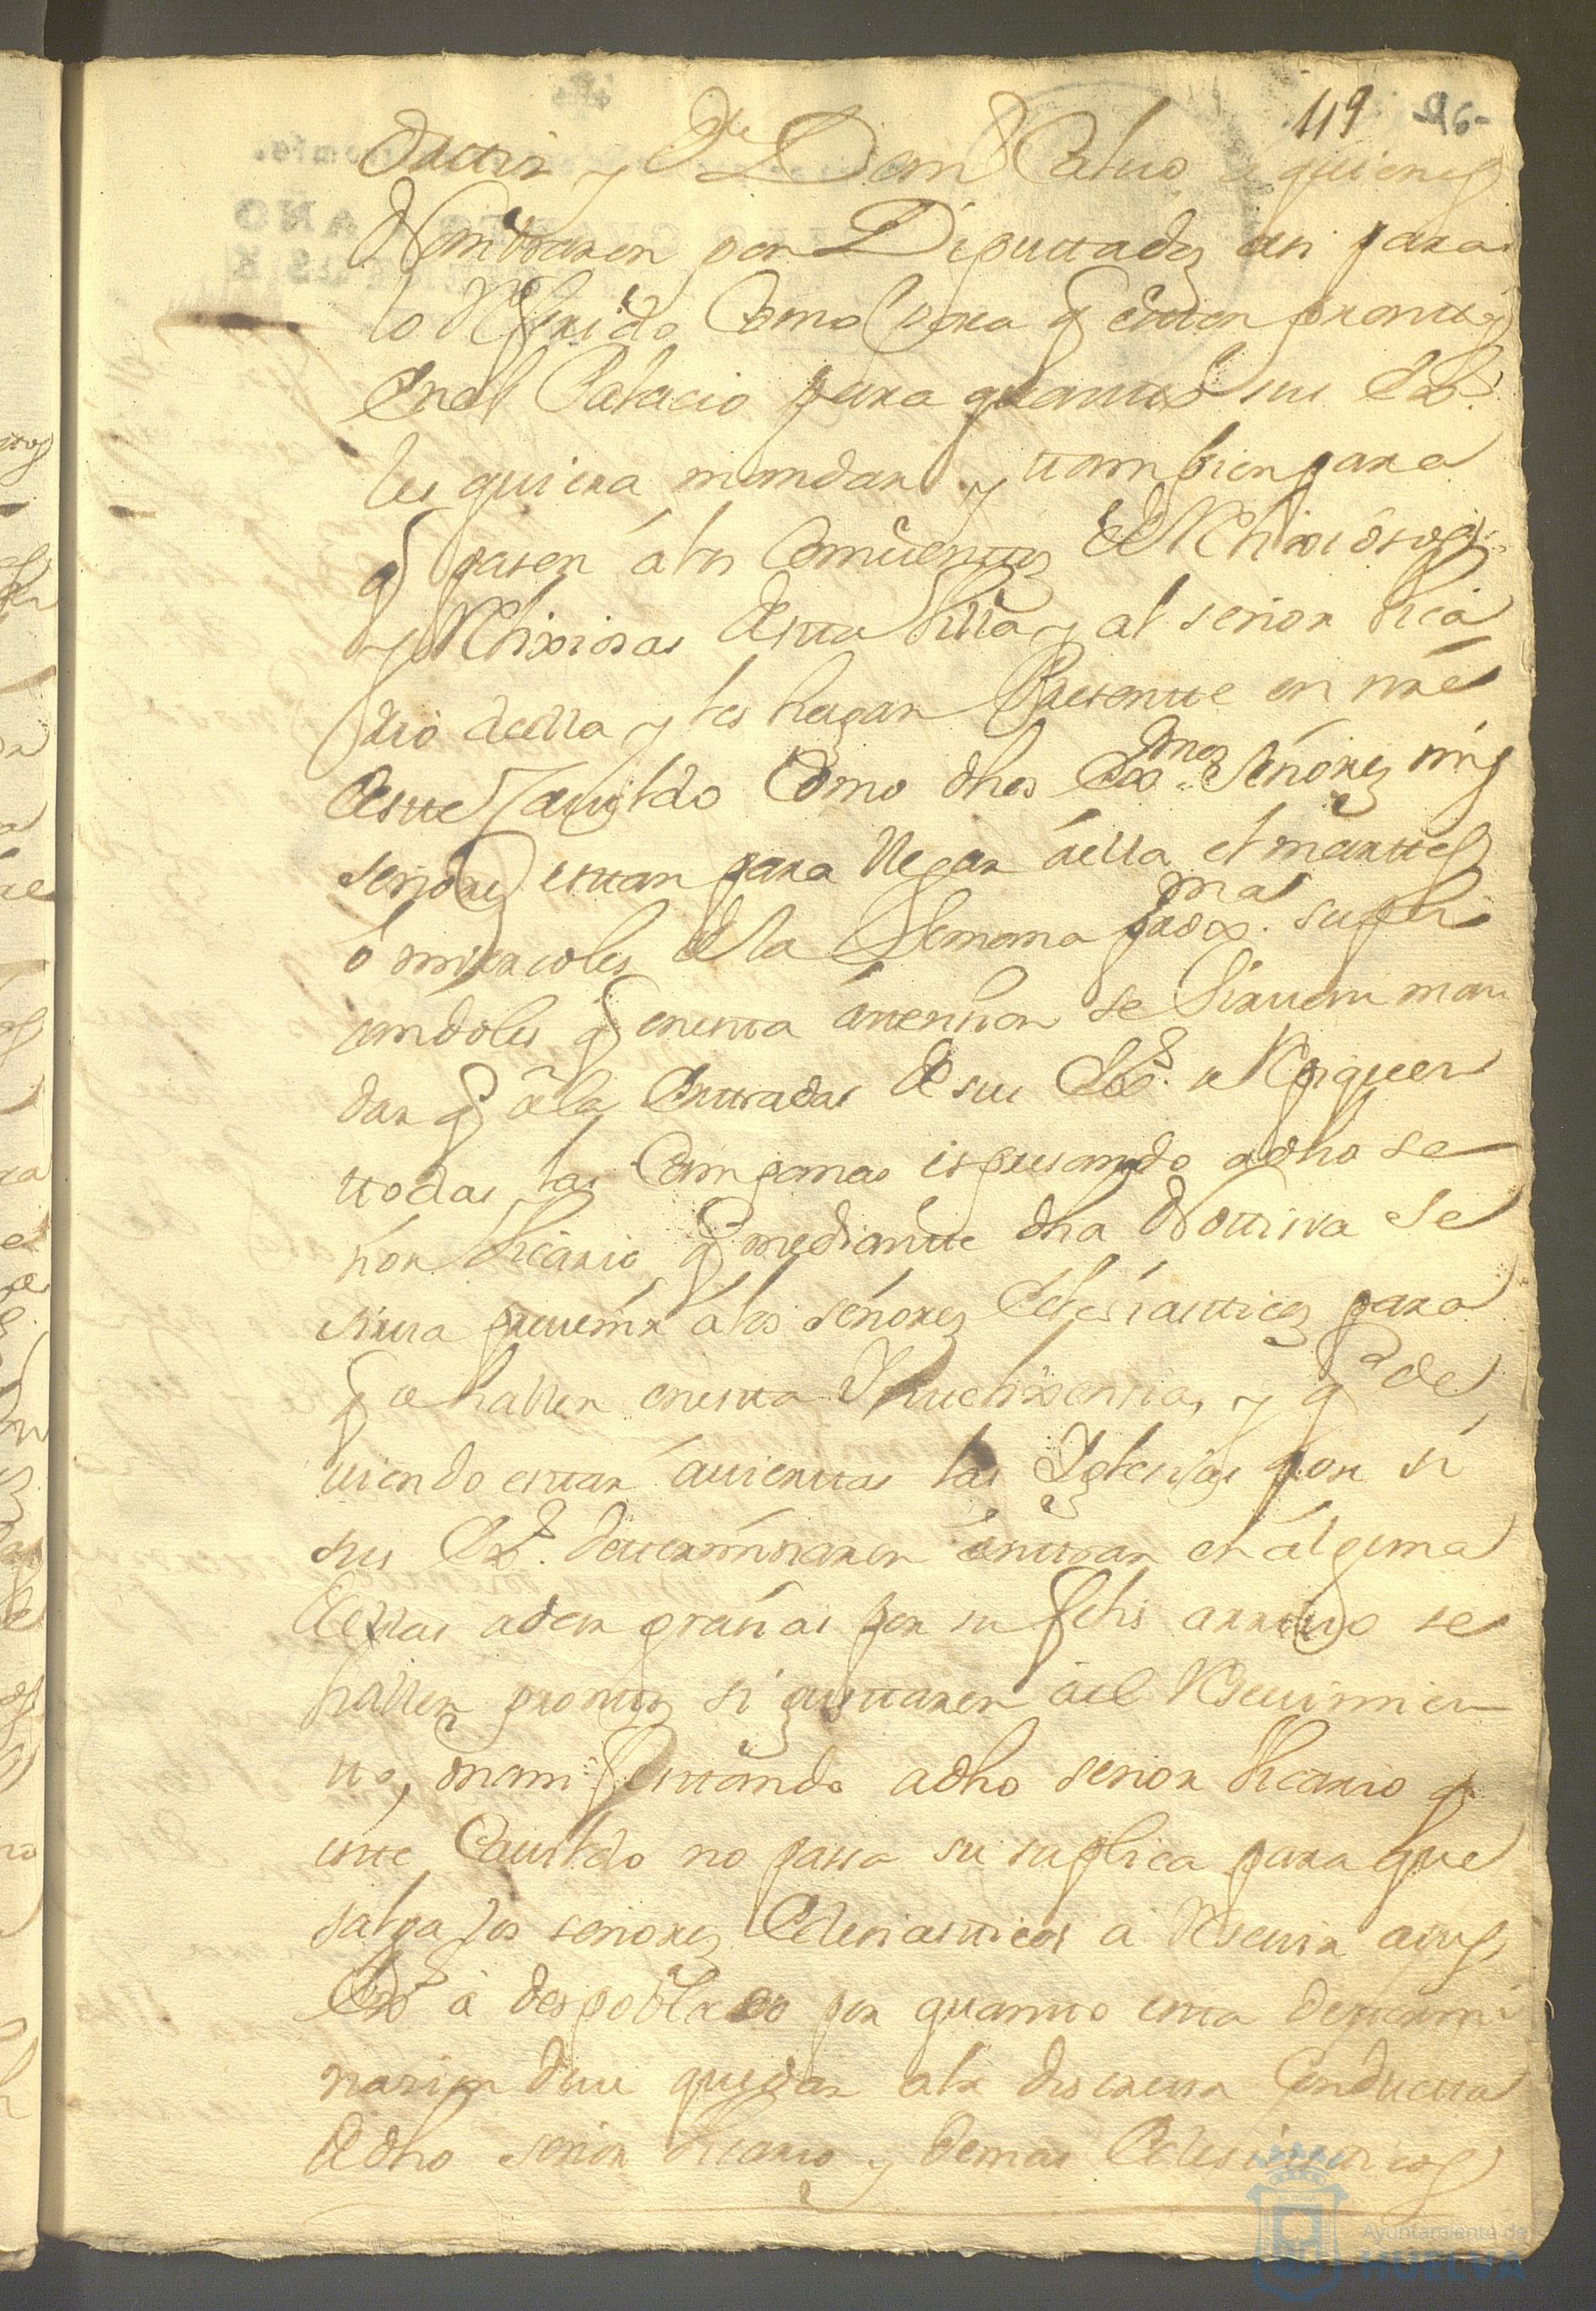 119 96-
y Dn Calvo a quienes
Nombraron por Diputtados asi para
lo Referido Como para q esten promttos
en el Palacio para quantto sus Exs.
les quiera mandar y ttambien para
q pasen á los Comventtos de Relixiosos
y Relixiosas destta Villa y al señor Vica
rio de ella y les hagan Presentte en nre
deste Cavildo Como dhos Exmos. Señores mis
señores esttan para llegar áella el marttes
ó miercoles de la Semana proxma. supli
candoles q en estta attension se Sirvan man
dar q á las Enttradas de sus Exs. se Repiquen
ttodas las Campanas expresando a dho se
ñor Vicario q mediantte dha Notticia se
sirva prevenir á los señores Eclesiastticos para
q se hallen en estta Yntelixensia, y q de
viendo esttar avierttas las Yglesias por si
sus Exs. detterminaren enttrar en alguna
de ellas a dar grasias por su felis arrivo se
hallen promttos si gusttaren á el Resevimien
tto, manifesttando a dho señor Vicario q
estte Cavildo no passa su suplica para que
salga los señores Eclesiastticos a Resevir a sus
Exs a despoblado por quantto estta dettermi
nasion deve quedar a la discretta Conductta
de dho señor Vicario y demas Eclesiastticos
Ayuntamiento de
HUELVA